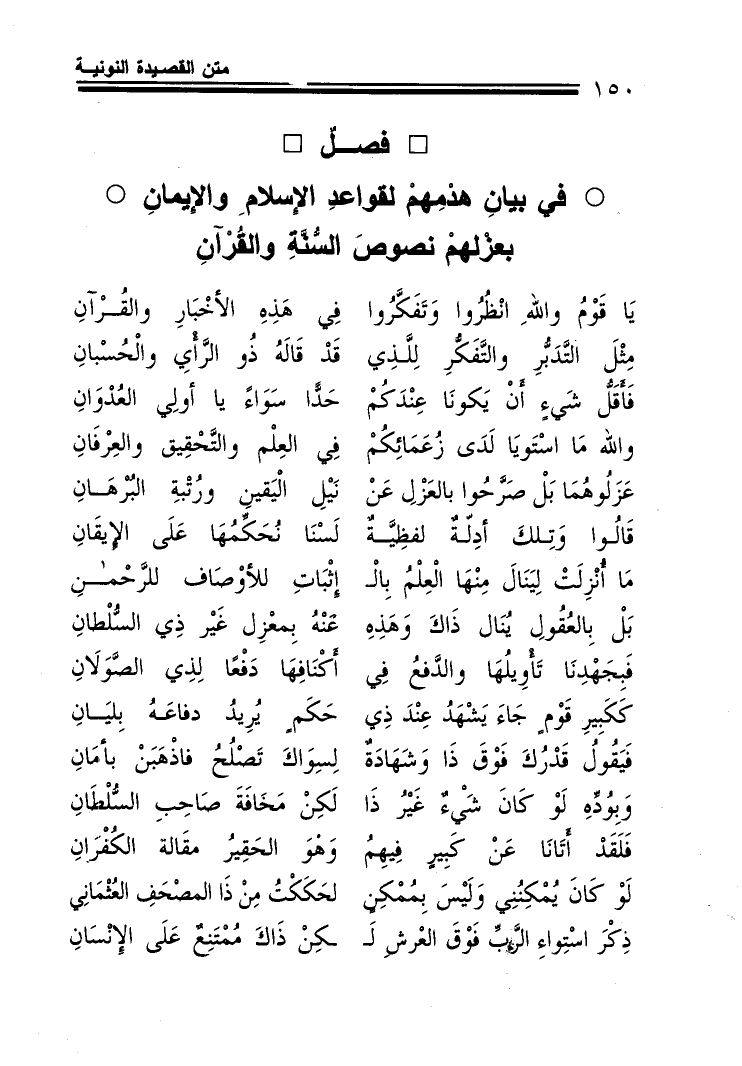 متن القصيدة النونيـة
١٥٠
□ فصـــلٌ □
○ في بيانِ هدْمِهمْ لقواعدِ الإسلامِ والإيمانِ ○
بعزْلهمْ نصوصَ السُّنَّةِ والقُرْآنِ
يَا قَوْمُ واللهِ انْظُرُوا وَتَفَكَّرُوا فِي هَذِهِ الأخْبَارِ والقُــرْآنِ
مِثْلَ التَّدَبُّرِ والتَّفَكُّرِ لِلَّـذِي قَدْ قَالَهُ ذُو الرَّأْيِ والْحُسْبانِ
فَأَقَلُّ شَيءٍ أَنْ يَكونَا عِنْدَكُمْ حَدًّا سَوَاءً يا أولِي العُدْوَانِ
والله مَا اسْتَويَا لَدَى زُعَمَائِكُمْ فِي العِلْمِ والتَّحْقِيق والعِرْفَانِ
عَزَلُوهُمَا بَلْ صَرَّحُوا بالعَزْلِ عَنْ نَيْلِ الْيَقينِ ورُتْبةِ البُرْهَــانِ
قَالُـوا وَتِـلكَ أدِلّـةٌ لفظِيَّـةٌ لَسْنَا نُحَكِّمُهَا عَلَى الإِيقَانِ
مَا أُنْزِلَتْ لِيَنَالَ مِنْهَا الْعِلْمُ بِالْـ إِثْبَاتِ للأوْصَاف للرَّحْمٰـنِ
بَلْ بِالعُقُولِ يُنَال ذَاكَ وَهَذِهِ عَنْهُ بِمعْزِل غَيْر ذِي السُّلْطانِ
فَبِجَهْدِنَا تَأْوِيلُهَا والدَّفعُ فِي أَكْنَافِهَا دَفْعًا لِذِي الصَّوَلَانِ
كَكَبِيرِ قَوْمٍ جَاءَ يَشْهَدُ عِنْدَ ذِي حَكَمٍ يُرِيدُ دفاعَـهُ بِليَـانِ
فَيَقُولُ قَدْرُكَ فَوْقَ ذَا وَشَهَادَةٌ لِسِوَاكَ تَصْلُحُ فاذْهَبَنْ بأمَانِ
وَبِوُدِّهِ لَوْ كَانَ شَيْءٌ غَيْرُ ذَا لَكِنْ مَخَافَةَ صَاحِبِ السُّلْطَانِ
فَلَقَدْ أَتَانَا عَنْ كَبِيرٍ فِيهِمُ وَهْوَ الحَقِيرُ مَقَالة الكُفْرَانِ
لَوْ كَانَ يُمْكِنُنِي وَلَيْسَ بِمُمْكِنٍ لحَكَكْتُ مِنْ ذَا المصْحَفِ العُثْمَاني
ذِكْرَ اسْتِواءِ الرَّبِّ فَوْقَ العَرْشِ لَـ ـكِنْ ذَاكَ مُمْتَنِعٌ عَلَى الإِنْسَانِ